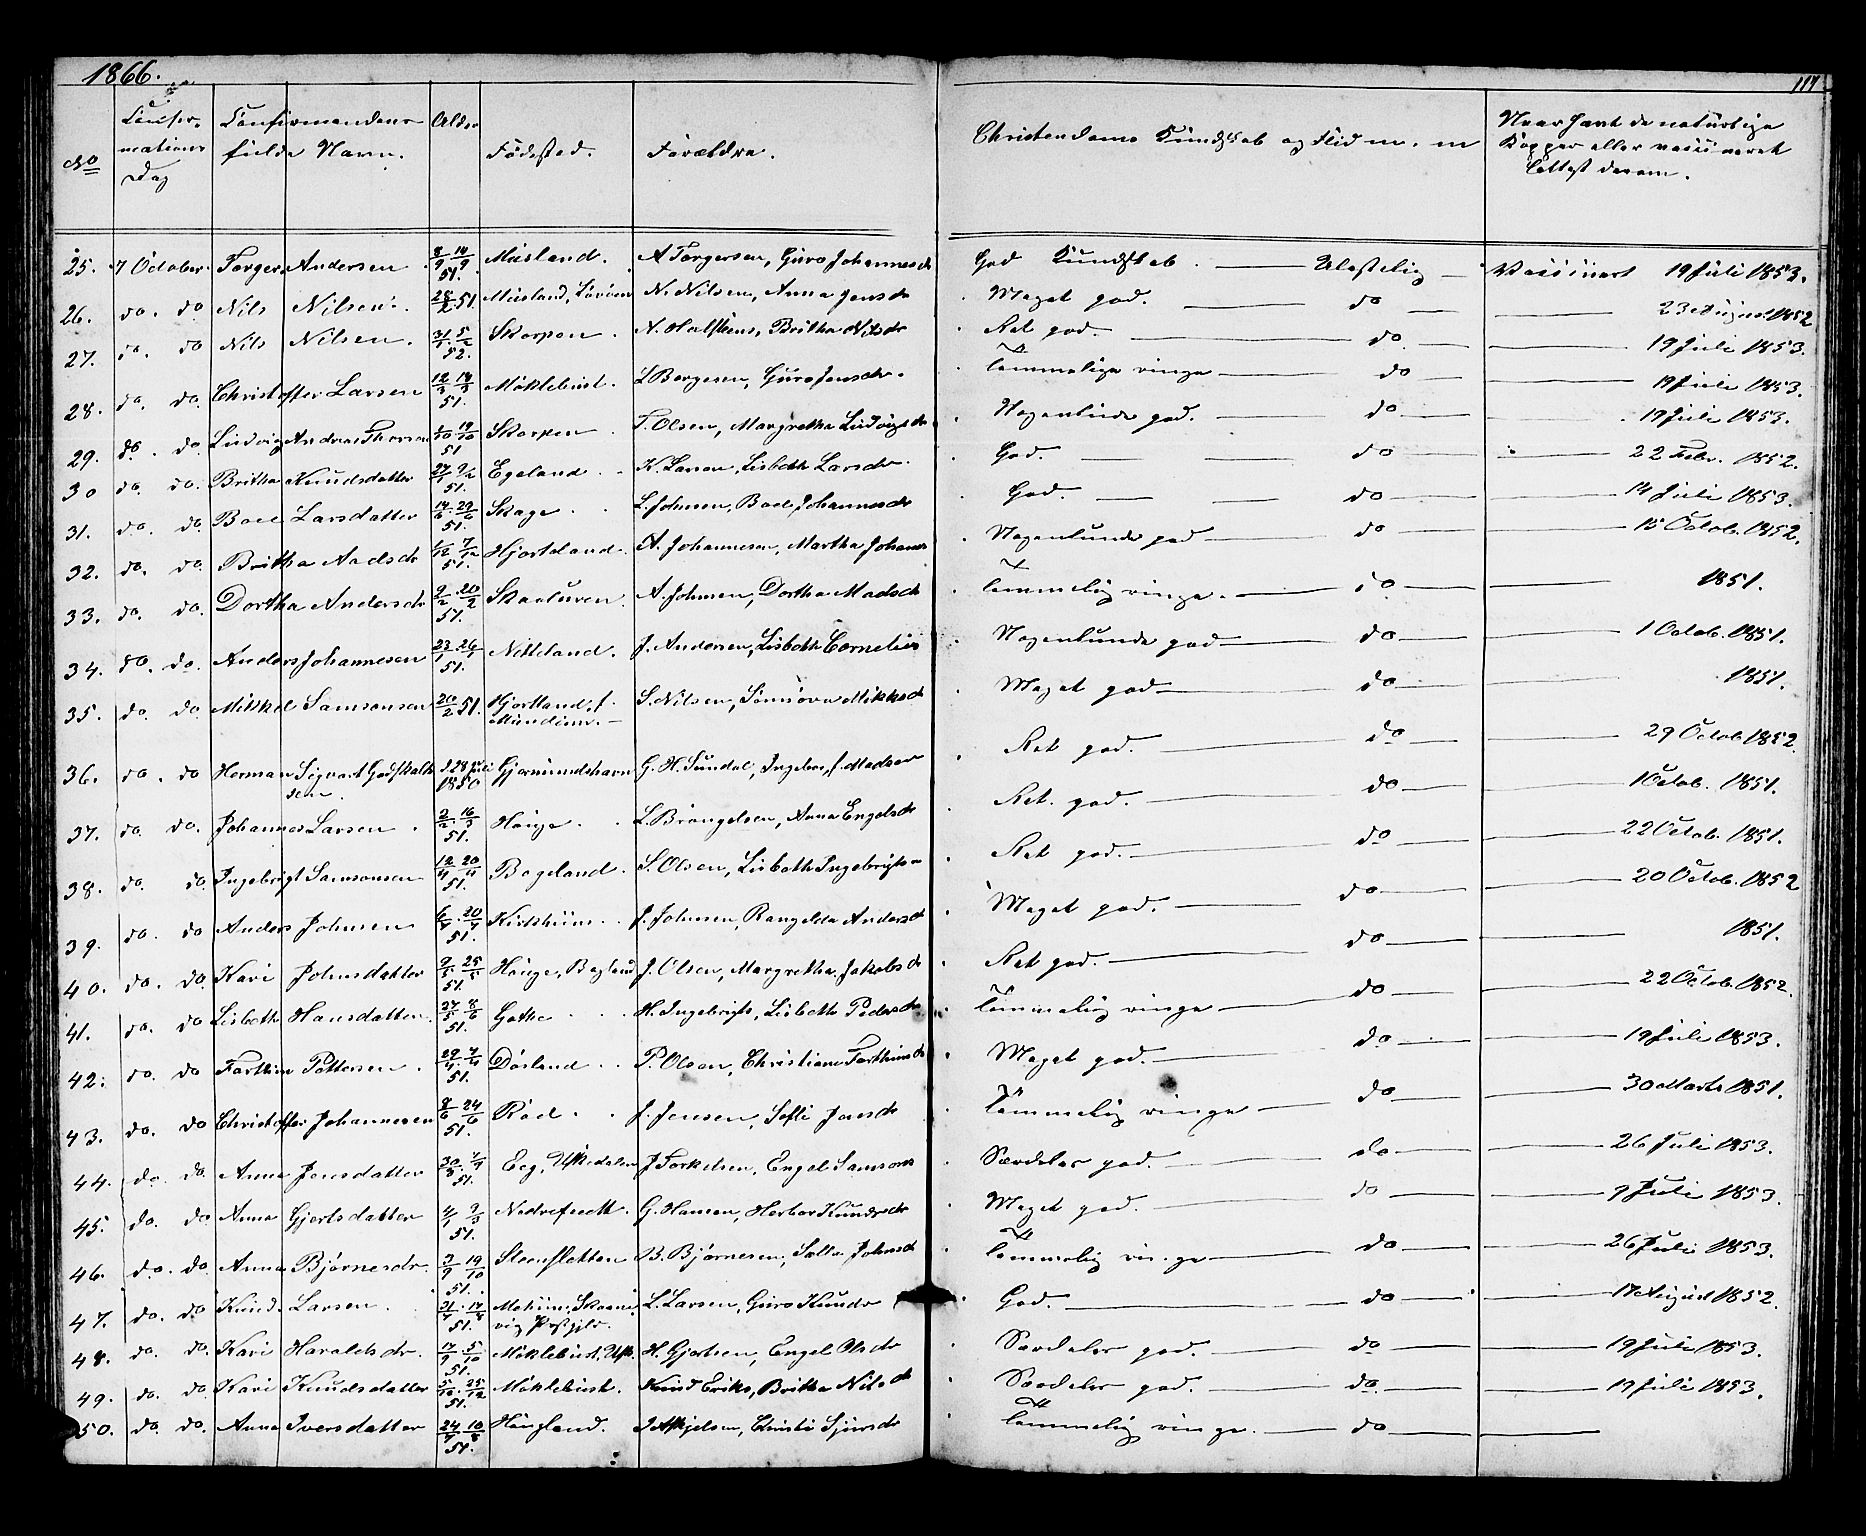 1866.
117
No
Confir-
mations
Dag
Confirmandens
fulde Navn.
Alder
Fødested.
Forældre.
Christendoms Kundskab og Flid m. m
Naar havt de naturlige
Kopper eller vaccineret
Cattest derom.
25. 7 October Torger Andersen 51. Musland. A Torgersen, Guro Johannesdr God Kundskab. Ulastelig Vaccineret 19 Juli 1853.
26. do. do Nils Nilsen. 51. Musland, N. Nilsen, Anna Jensdr Meget god. do 23 August 1852
27. do. do Nils Nilsen. 52. Skorpen N. Halsteins, Britha Nilsdr Ret god. do 19 Juli 1853.
28. do. do. Christoffer Larsen 51. Møklebust. L Børgesen, Guro Jensdr. Temmelige ringe do 19 Juli 1853.
29. do. do. Ludvig Andreas Thorsen 51 Skorpen T. Olsen, Margretha Ludvigsdr Nogenlunde god. do 19 Juli 1853.
30 do. do. Britha Knudsdatter 51. Egeland K. Larsen, Lisbeth Larsdr. God. do 22 Febr. 1852.
31. do. do. Boel Larsdatter 51. Skage L. Johnsen, Boel Johannesdr God. do 14 Juli 1853.
32. do. do. Britha Aadsdr 51. Hjorteland. A. Johannesen, Martha Johannes Nogenlunde god do 15 Octob. 1852.
33. do. do. Dortha Andersdr 51. Skaaluren. A. Johnsen, Dortha Madsdr Temmelig ringe. do 1851.
34. do. do. Anders Johannesen 51. Netteland. J. Andersen, Lisbeth Cornelius Nogenlunde god do 1 Octob. 1851.
35. do. do. Mikkel Samsonsen 20/2 51. Hjortland, f. S. Nilsen, Sønnøva Mikkelsdr Meget god do 1851.
Mundheim.
36. do. do Herman Sigvart Godskalk d 28 Juli Gjermundshavn G. H. Sundal, Ingebor, f. Madsen Ret god. do 29 Octob 1852.
sen. 1850
37. do. do. Johannes Larsen. 51. Hauge. L. Brangelsen, Anna Engelsdr Ret. god. do 1 Octob. 1851.
38. do. do. Ingebrigt Samsonsen 51. Bogeland. S. Olsen, Lisbeth Ingebrigts Ret god. do 22 Octob. 1851.
39. do. do Anders Johnsen 51. Kirkhuus J. Johnsen, Rangelda Andersdr Meget god. do 20 Octob. 1852
40. do. do. Kari Johnsdatter 51. Hauge, Bogland J. Olsen, Margretha Jakobsdr Ret god. do 1851.
41. do. do Lisbeth Hansdatter. 51. Gothe H. Ingebrigts, Lisbeth Pedersdr Temmelig ringe do 22 Octob. 1852.
42. do. do Farthin Pettersen. 51. Døsland P. Olsen, Christiane Farthinsdr Meget god. do 19 Juli 1853.
43. do. do Christoffer Johannesen 51. Rød J. Jensen, Sofli Jonsdr Temmelig ringe do 30 Marts 1851.
44. do. do. Anna Jensdatter 51. Eeg, J Torkelsen, Engel Samsons Særdeles god. do 26 Juli 1853.
45. do. do. Anna Gjertsdatter 51. Nedrefuett. G. Hansen, Herbor Knudsdr Meget god. do 9 Juli 1853.
46. do. do. Anna Bjørnesdr. 51. Steensletten B. Bjørnesen, Salla Johnsdr Temmelig ringe do 26 Juli 1853.
47. do. do Knud. Larsen. 51. Skaane L. Larsen, Guro Knudsdr God. do 17 August 1852.
vig Præstgjld.
48. do. do. Kari Haraldsdr. 51. Møklebust, H. Gjertsen, Engel Olsdr Særdeles god. do 19 Juli 1853.
49. do. do. Kari Knudsdatter 51. Møklebust. Knud Eriks, Britha Nilsdr Særdeles god. do. 19 Juli 1853.
50. do. do. Anna Iversdatter 51. Haugland. I Askjelsen, Christi Sjursdr Temmelig ringe. do